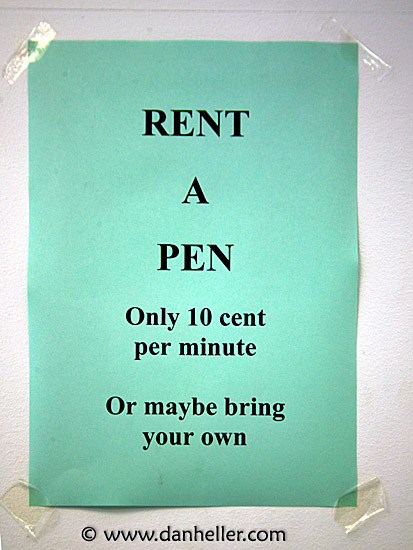 RENT
A
PEN
Only 10 cent
per minute
Or maybe bring
your own
© www.danheller.com